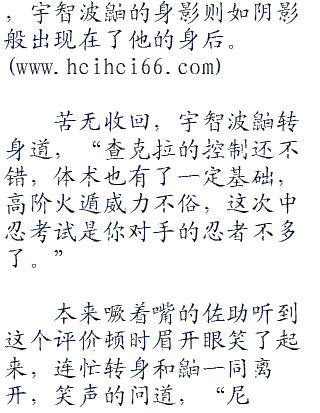 ，宇智波鼬的身影则如阴影
般出现在了他的身后。
(www.hcihci66.com)
苦无收回，宇智波鼬转
身道，“查克拉的控制还不
错，体术也有了一定基础，
高阶火遁威力不俗，这次中
忍考试是你对手的忍者不多
了。”
本来噘着嘴的佐助听到
这个评价顿时眉开眼笑了起
来，连忙转身和鼬一同离
开，笑声的问道，“尼